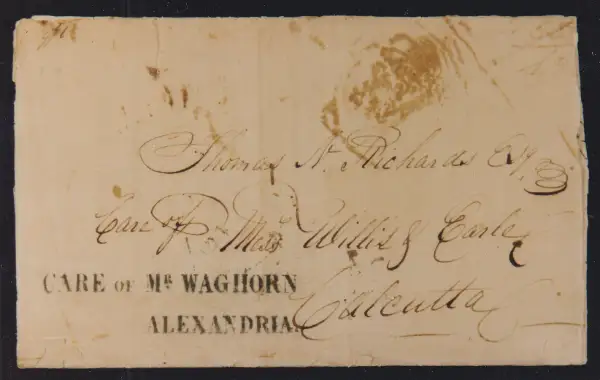 Thomas N. Richards Esq.
Care of Messrs Willis & Earle
Calcutta
CARE OF MR WAGHORN
ALEXANDRIA.